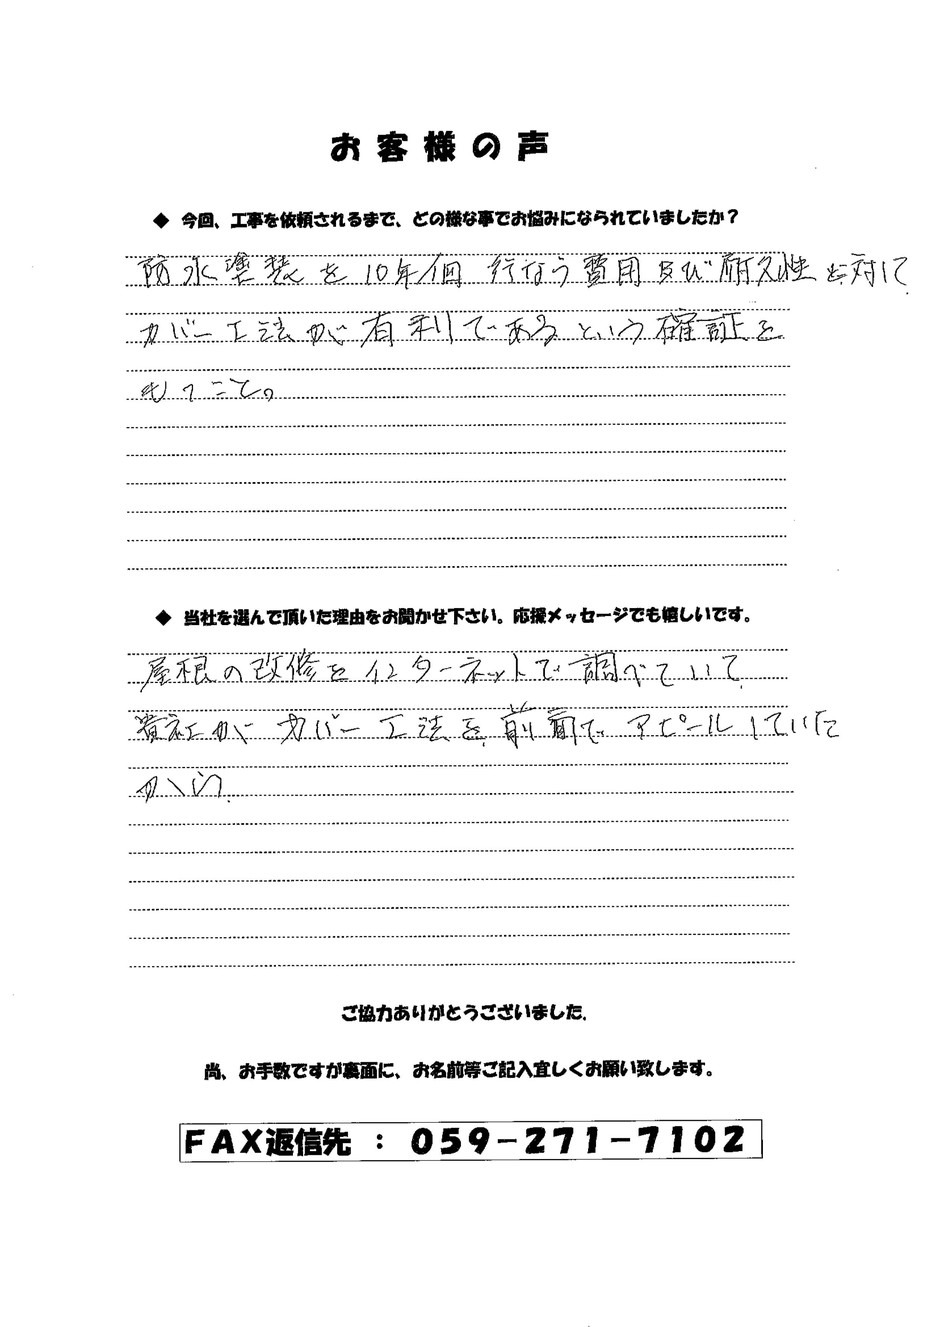 お客様の声
◆ 今回、工事を依頼されるまで、どの様な事でお悩みになられていましたか？
防水塗装を10年/回 行なう費用及び耐久性に対して
カバー工法が有利であるという確証を
もつこと。
◆ 当社を選んで頂いた理由をお聞かせ下さい。応援メッセージでも嬉しいです。
屋根の改修をインターネットで調べていて
貴社がカバー工法を前面でアピールしていた
から.
ご協力ありがとうございました.
尚、お手数ですが裏面に、お名前等ご記入宜しくお願い致します。
ＦＡＸ返信先 ： 059－271－7102